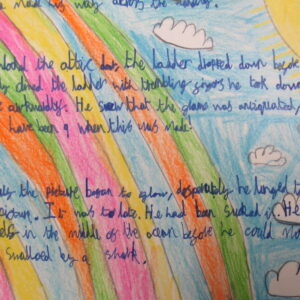 made his way across the
the attic door the ladder dropped down before
the ladder with trembling fingers he took down
awkwardly. He saw that the glass was antiquated,
have been 9 when this was made.
the picture began to glow, desperately he lunged
It was too late. He had been sucked in. He
in the middle of the ocean before he could
swallowed by a shark.